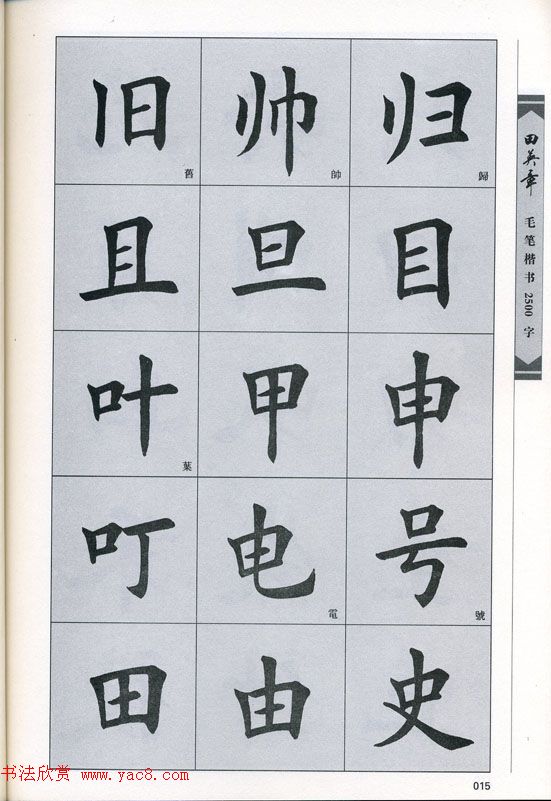 旧 舊 帅 帥 归 歸
且 旦 目
叶 葉 甲 申
叮 电 電 号 號
田 由 史
田英章 毛笔楷书 2500 字
书法欣赏 www.yac8.com
015